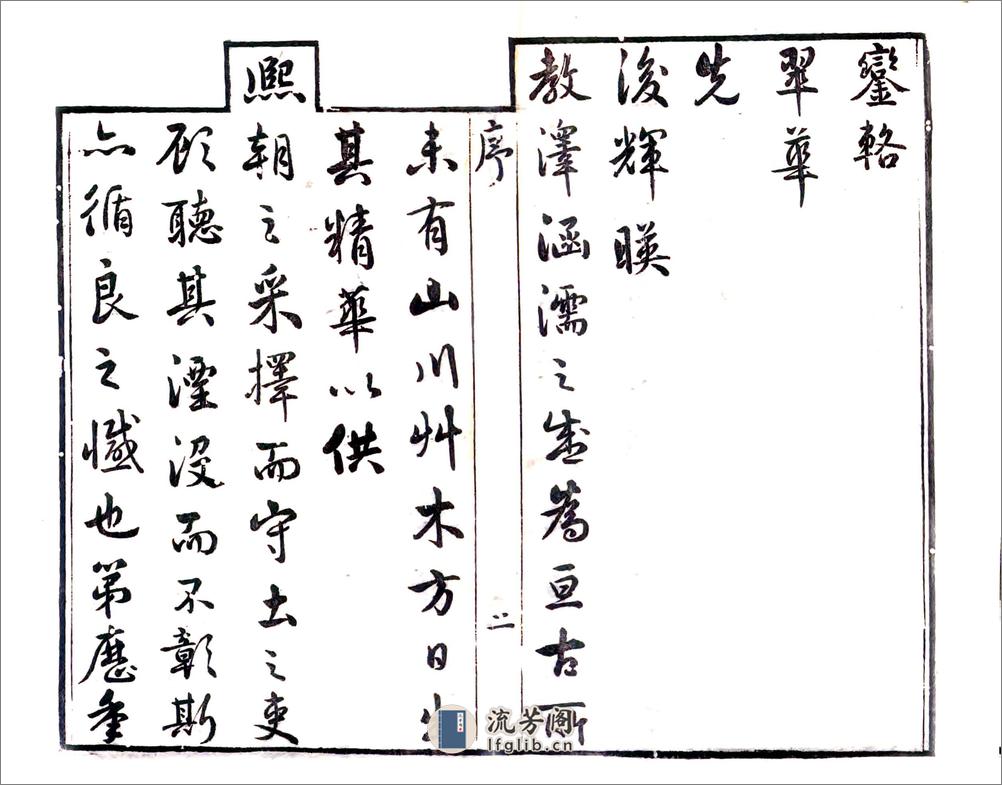 鑾輅
翠華
先
後輝暎
教澤涵濡之盛爲亘古所
序
二
未有山川艸木方日出
其精華以供
熙朝之采擇而守土之吏
顧聽其湮没而不彰斯
亦循良之憾也第歷年
流芳阁
lfglib.cn